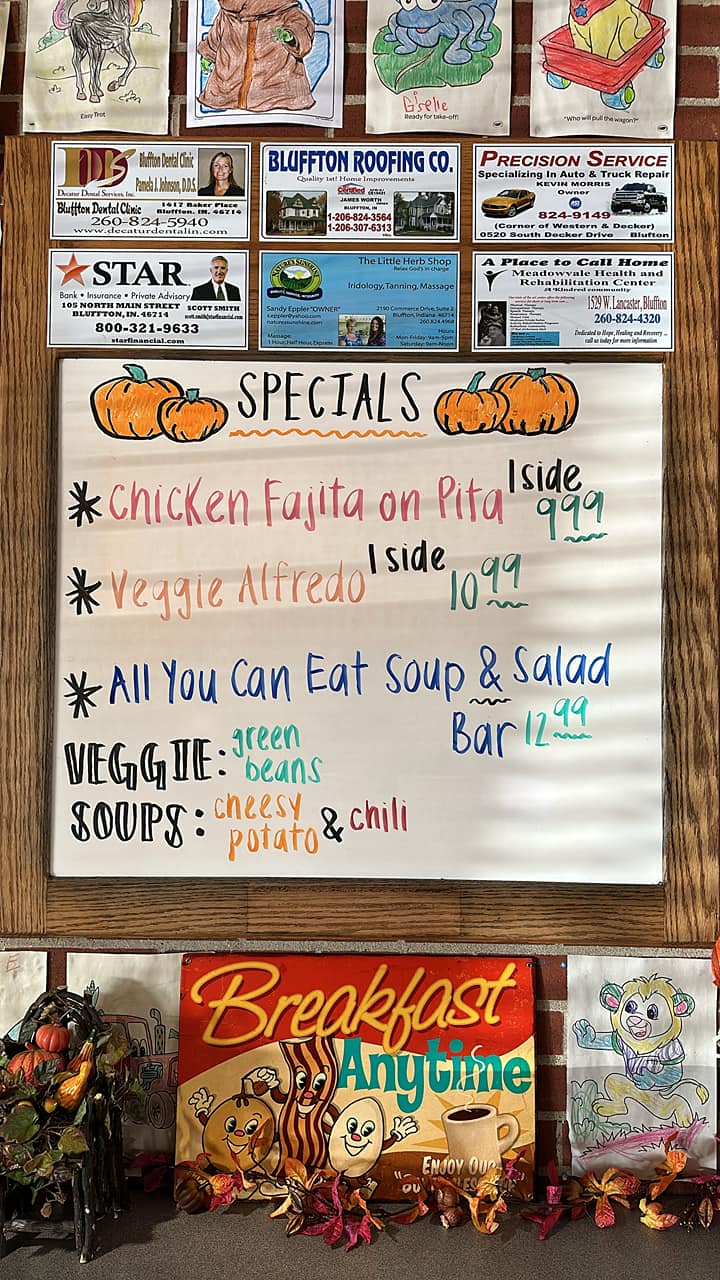 Easy Trot
Giselle
Ready for take-off!
"Who will pull the wagon?"
DDS
Decatur Dental Services, Inc.
Bluffton Dental Clinic
Pamela J. Johnson, D.D.S.
Bluffton Dental Clinic
1417 Baker Place
Bluffton, IN. 46714
260-824-5940
www.decaturdentalin.com
BLUFFTON ROOFING CO.
Quality 1st! Home Improvements
Certified
JAMES WORTH
BLUFFTON, IN
1-206-824-3564
1-206-307-6313
PRECISION SERVICE
Specializing In Auto & Truck Repair
KEVIN MORRIS
Owner
824-9149
(Corner of Western & Decker)
0520 South Decker Drive Bluffton
STAR
Bank • Insurance • Private Advisory
105 NORTH MAIN STREET
BLUFFTON, IN 46714
SCOTT SMITH
scott.smith@starfinancial.com
800-321-9633
starfinancial.com
NATURE'S SUNSHINE
The Little Herb Shop
Relax God's in charge
Iridology, Tanning, Massage
Sandy Eppler "OWNER"
2190 Commerce Drive, Suite 2
Bluffton, Indiana 46714
Massage:
Hours:
Mon-Friday: 9am-5pm
Saturday: 9am-Noon
A Place to Call Home
Meadowvale Health and
Rehabilitation Center
A Kindred community
1529 W. Lancaster, Bluffton
260-824-4320
Dedicated to Hope, Healing and Recovery ...
call us today for more information
SPECIALS
* Chicken Fajita on Pita 1 side 9 99
* Veggie Alfredo 1 side 10 99
* All You Can Eat Soup & Salad
Bar 12 99
VEGGIE: green
beans
SOUPS: cheesy
potato & chili
Breakfast
Anytime
ENJOY OUR